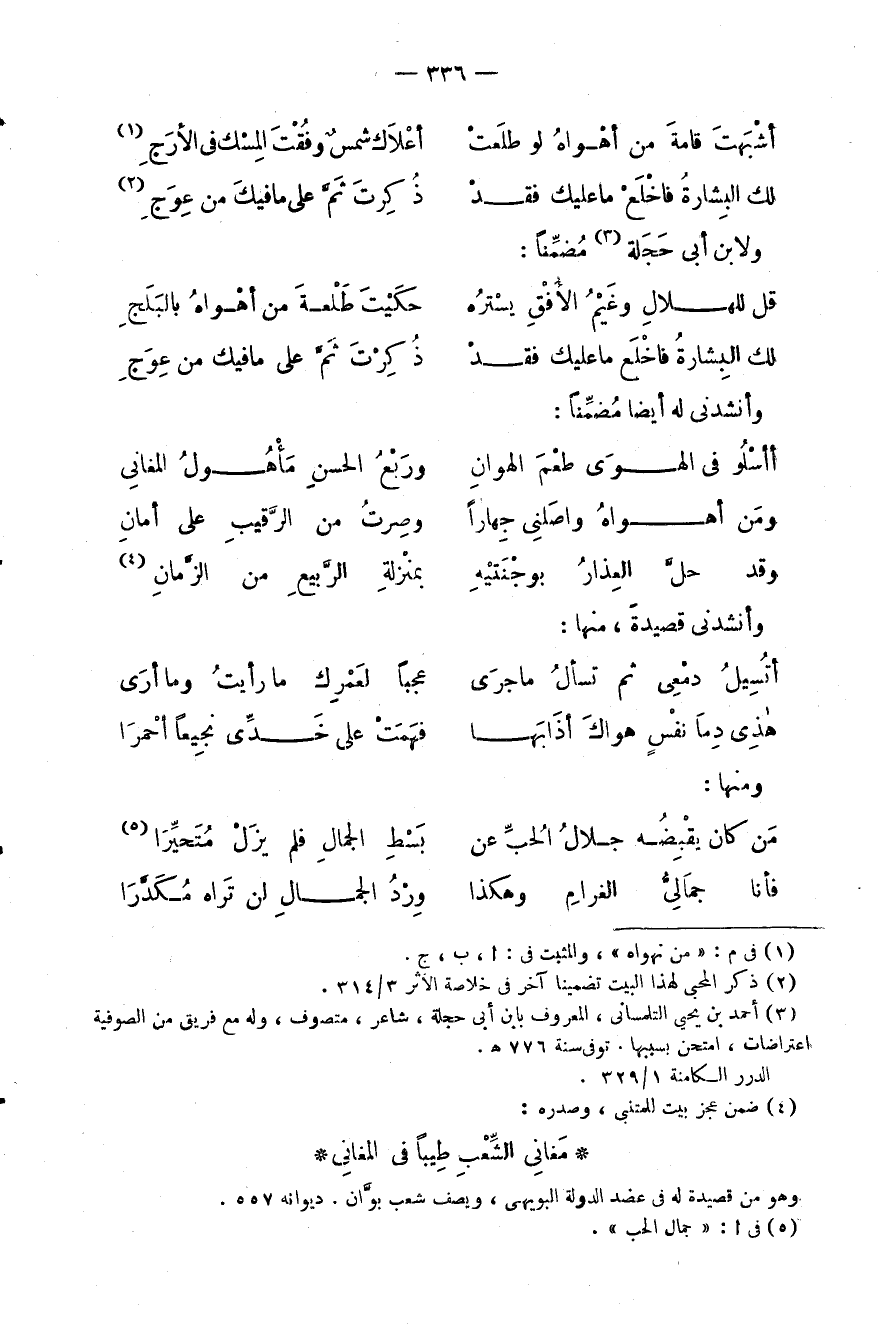 — ٣٣٦ —
أشْبَهتَ قامةَ من أهْـواهُ لو طلَعتْ أعْلاَك شمسٌ وفُقْتَ المِسْك فى الأرَجِ (١)
لك البِشارةُ فاخْلَعْ ماعليك فقـــدْ ذُكِرتَ ثَمَّ على مافيكَ من عِوَجِ (٢)
ولابن أبى حَجَلة (٣) مُضمِّناً :
قل للهـــلالِ وغَيْمُ الأُفْقِ يسْترُه حكَيْتَ طَلْعـةَ من أهْـواهُ بالبَلَجِ
لك البِشارةُ فاخْلَع ماعليك فقـــدْ ذُكِرْتَ ثَمَّ على مافيك من عِوَجِ
وأنشدنى له أيضا مُضمِّناً :
أأسْلُو فى الهــوَى طعْمَ الهوانِ ورَبْعُ الحسنِ مَأْهُــولُ المغانِي
ومَن أهــواهُ واصَلنِى جِهاراً وصِرتُ من الرَّقيبِ على أمانِ
وقد حلَّ العِذارُ بوجْنَتيْهِ بمنْزلةِ الرَّبيعِ من الزَّمانِ (٤)
وأنشدنى قصيدةً ، منها :
أتُسِيلُ دمْعِى ثم تسألُ ماجرَى عجباً لعَمْرِك ما رأيتُ وما أرَى
هٰذِى دِماَ نفْسٍ هواكَ أذَابَهــا فهَمَتْ على خَــدِّى نَجِيعاً أحْمرَا
ومنها :
مَن كان يقْبِضُــه جـلالُ الحُبِّ عن بَسْطِ الجمالِ فلم يزَلْ مُتَحيِّرَا (٥)
فأنا جمَالِيُّ الغرامِ وهكذا وِرْدُ الجمــالِ لن تَراه مُـكَدَّرَا
(١) فى م : « من نهواه » ، والمثبت فى : ا ، ب ، ج .
(٢) ذكر المحبى لهذا البيت تضمينا آخر فى خلاصة الأثر ٣١٤/٣ .
(٣) أحمد بن يحيى التلمسانى ، المعروف بابن أبى حجلة ، شاعر ، متصوف ، وله مع فريق من الصوفية
اعتراضات ، امتحن بسببها . توفى سنة ٧٧٦ ه .
الدرر الـكامنة ٣٢٩/١ .
(٤) ضمن عجز بيت للمتنبى ، وصدره :
* مَغانِي الشِّعْبِ طِيباً فى المغانِي *
وهو من قصيدة له فى عضد الدولة البويهى ، ويصف شعب بوَّان . ديوانه ٥٥٧ .
(٥) فى ا : « جمال الحب » .